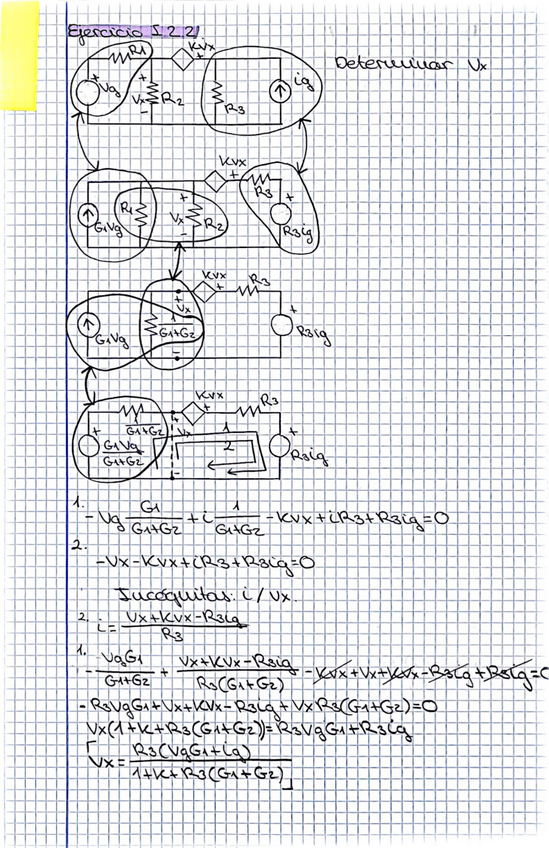 Ejercicio I.2.2
R1
Kvx
+
Determinar Vx
+
Vg
+
Vx
-
R2
R3
ig
Kvx
+
R3
G1Vg
R1
+
Vx
-
R2
+
R3ig
Kvx
+
R3
+
Vx
-
G1Vg
1/(G1+G2)
+
R3ig
Kvx
+
R3
1/(G1+G2)
+
G1Vg/(G1+G2)
+
Vx
-
1
2
+
R3ig
1. -Vg G1/(G1+G2) + i 1/(G1+G2) - Kvx + iR3 + R3ig = 0
2.
-Vx - Kvx + iR3 + R3ig = 0
Incógnitas: i / Vx.
2. i = (Vx + Kvx - R3ig)/R3
1. - VgG1/(G1+G2) + (Vx + Kvx - R3ig)/(R3(G1+G2)) - Kvx + Vx + Kvx - R3ig + R3ig = 0
- R3VgG1 + Vx + Kvx - R3ig + VxR3(G1+G2) = 0
Vx(1 + K + R3(G1+G2)) = R3VgG1 + R3ig
Vx = R3(VgG1 + ig)/(1 + K + R3(G1+G2))